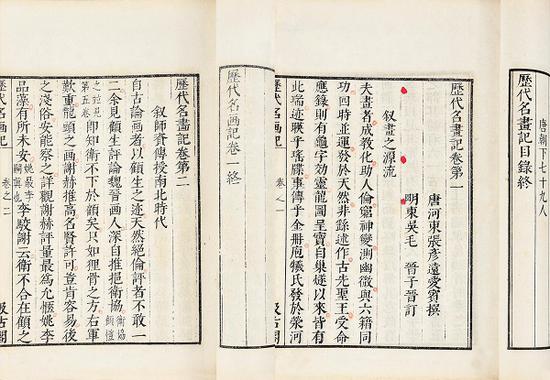 唐朝下七十九人
歷代名畫記目錄終
歷代名畫記卷第一
唐河東張彦遠愛賓撰
明東吳毛 晉子晉訂
叙畫之源流
夫畫者成教化助人倫窮神變測幽微與六籍同
功四時並運發於天然非繇述作古先聖王受命
應籙則有龜字効靈龍圖呈寶自巢燧以來皆有
此瑞迹暎乎瑤牒事傳乎金冊庖犧氏發於滎河
歷代名畫記 卷之一 汲古閣
歷代名画記卷一終
歷代名畫記卷第二
叙師資傳授南北時代
自古論画者以顧生之迹天然絶倫評者不敢一
二余見顧生評論魏晉画人深自推挹衛協
第五卷即知衛不下於顧矣只如狸骨之方右軍
歎重龍頭之画謝赫推高名賢許可豈肯容易後
之淺俗安能察之詳觀謝赫評量最為允愜姚李
品藻有所未安李駿謝云衛不合在顧之
歷代名画記 卷之二 汲古閣